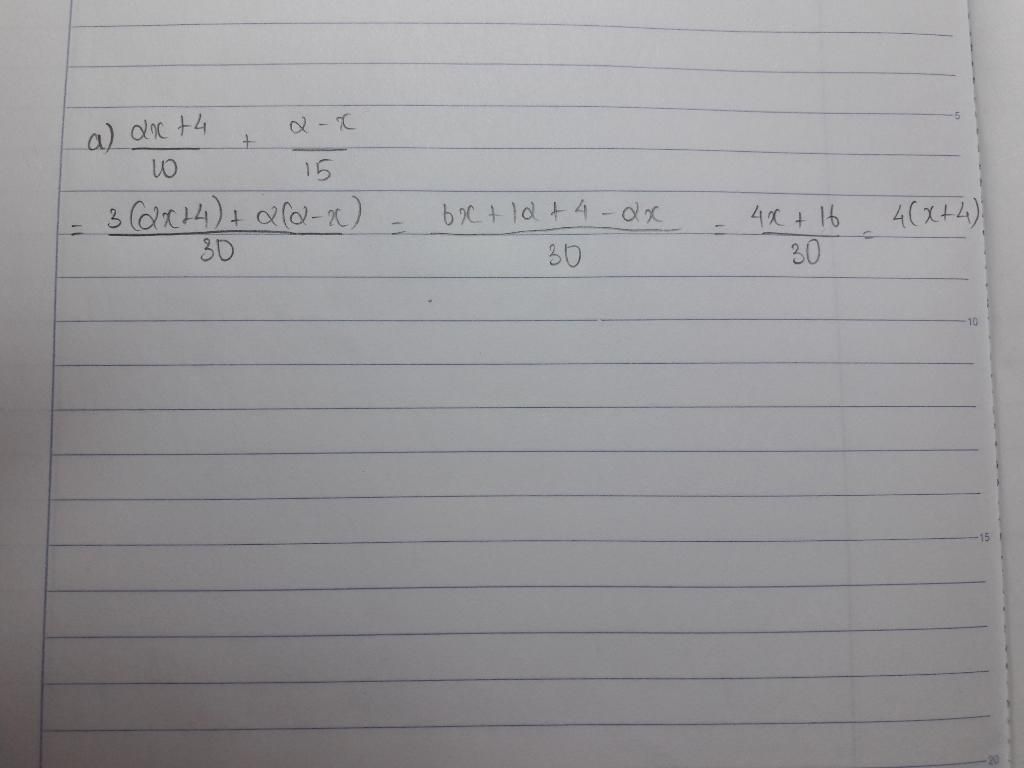 a) (2x + 4)/10 + (2 - x)/15
= (3(2x+4) + 2(2-x))/30 = (6x + 12 + 4 - 2x)/30 = (4x + 16)/30 = 4(x+4)
5
10
15
20